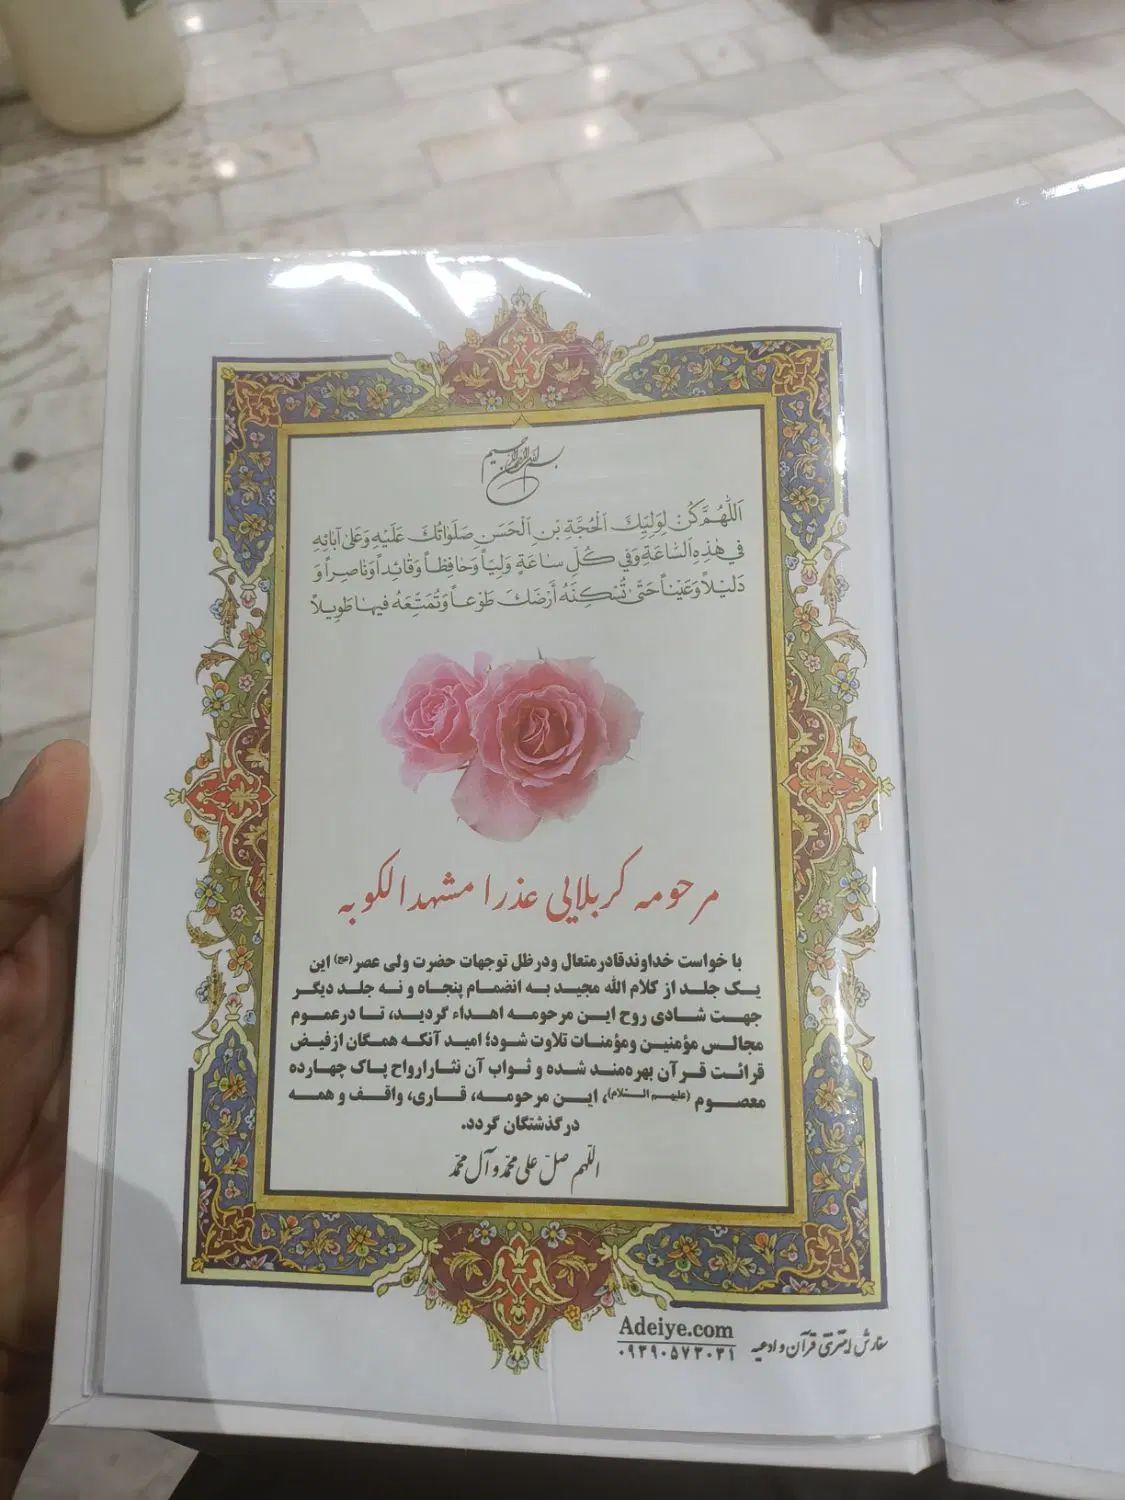 بسم الله الرحمن الرحیم
اَللّٰهُمَّ كُنْ لِوَلِيِّكَ الْحُجَّةِ بْنِ الْحَسَنِ صَلَوٰاتُكَ عَلَيْهِ وَعَلىٰ آبٰائِهِ
في هٰذِهِ السّٰاعَةِ وَفي كُلِّ سٰاعَةٍ وَلِيّاً وَحٰافِظاً وَقٰائِداً وَنٰاصِراً وَ
دَليٖلاً وَعَيْناً حَتّىٰ تُسْكِنَهُ أَرْضَكَ طَوْعاً وَتُمَتِّعَهُ فيهٰا طَويٖلاً
مرحومه کربلایی عذرا مشهدالکوبه
با خواست خداوندقادرمتعال ودرظل توجهات حضرت ولی عصر(عج) این
یک جلد از کلام الله مجید به انضمام پنجاه و نه جلد دیگر
جهت شادی روح این مرحومه اهداء گردید، تا درعموم
مجالس مؤمنین ومؤمنات تلاوت شود؛ امید آنکه همگان ازفیض
قرائت قرآن بهره‌مند شده و ثواب آن نثارارواح پاک چهارده
معصوم (علیهم السّلام)، این مرحومه، قاری، واقف و همه
درگذشتگان گردد.
اللّهم صلّ علی محمّد و آل محمّد
سفارش اینترنتی قرآن و ادعیه
Adeiye.com
۰۹۳۹۰۵۷۳۰۳۱